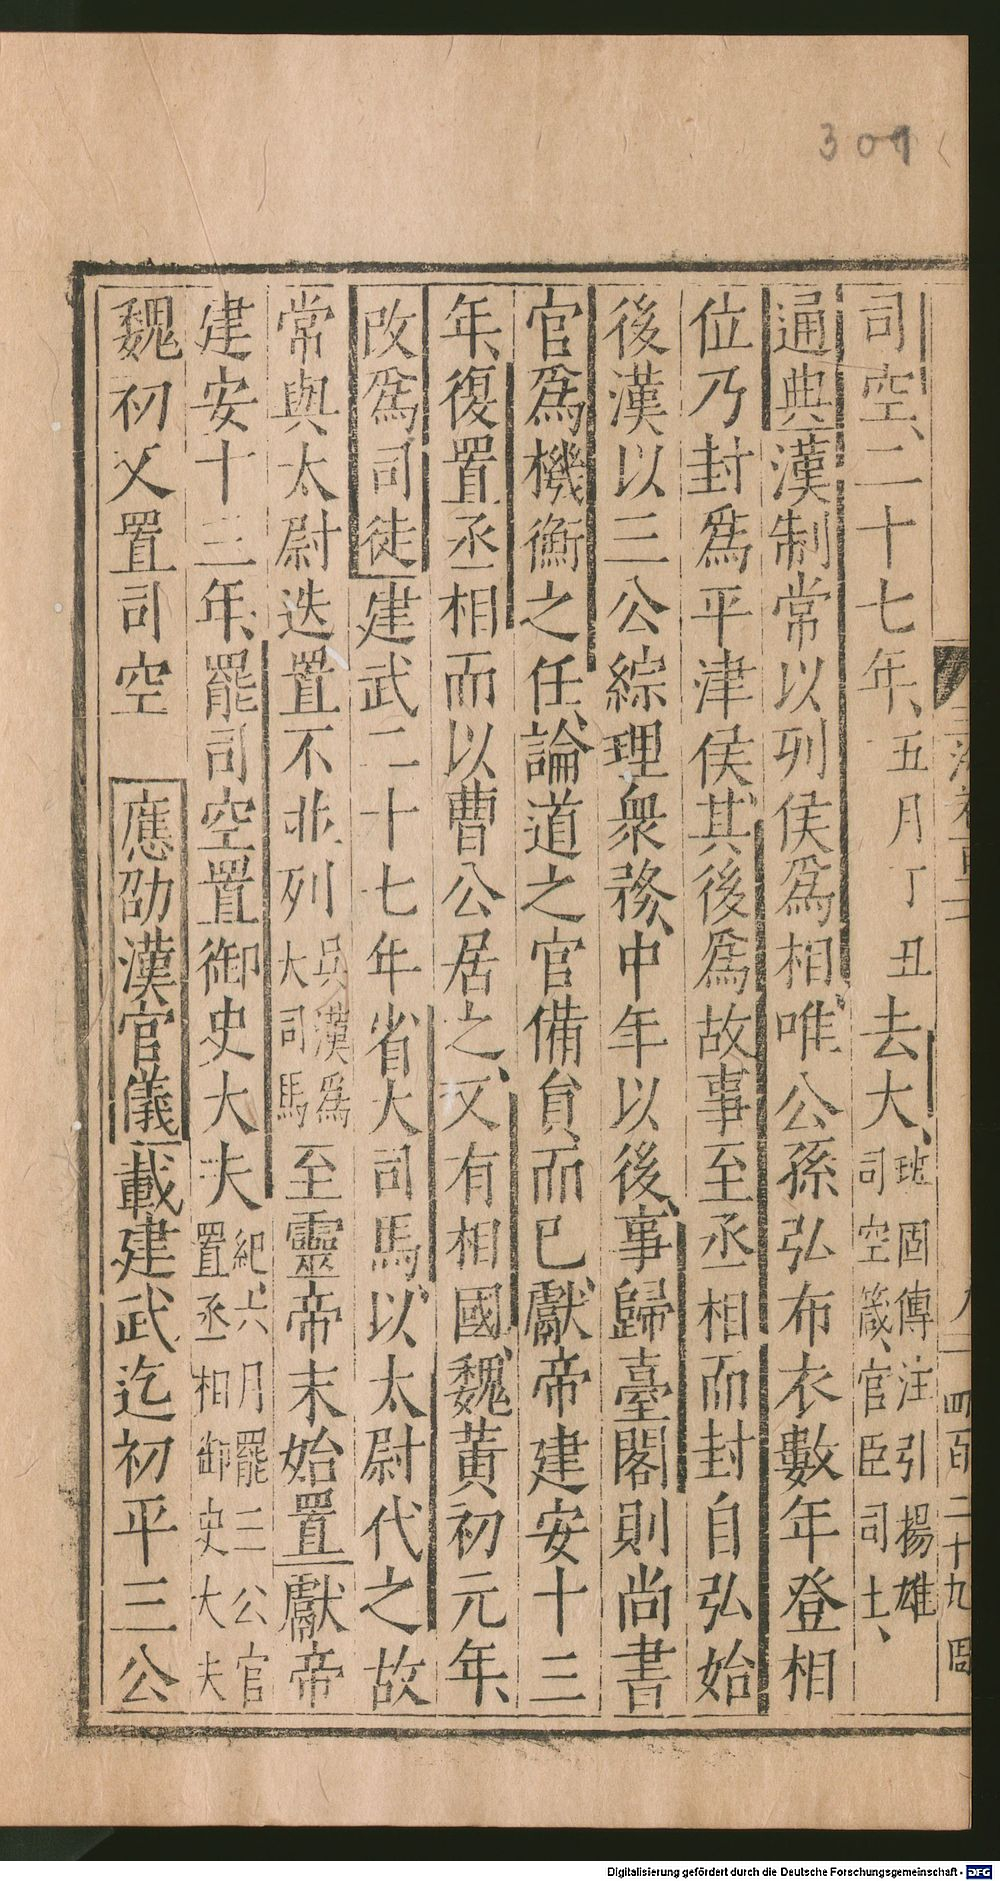 307
司空二十七年五月丁丑去大班固傳注引揚雄司空箴官臣司土
通典漢制常以列侯爲相唯公孫弘布衣數年登相
位乃封爲平津侯其後爲故事至丞相而封自弘始
後漢以三公綜理衆務中年以後事歸臺閣則尚書
官爲機衡之任論道之官備員而已獻帝建安十三
年復置丞相而以曹公居之又有相國魏黃初元年
改爲司徒建武二十七年省大司馬以太尉代之故
常與太尉迭置不並列吳漢爲大司馬至靈帝末始置獻帝
建安十三年罷司空置御史大夫紀六月罷三公官置丞相御史大夫
魏初又置司空 應劭漢官儀載建武迄初平三公
Digitalisierung gefördert durch die Deutsche Forschungsgemeinschaft - DFG